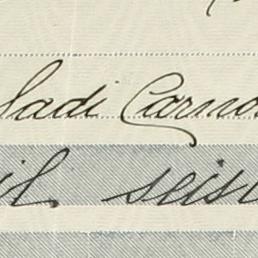 Sadi Carno
il seis